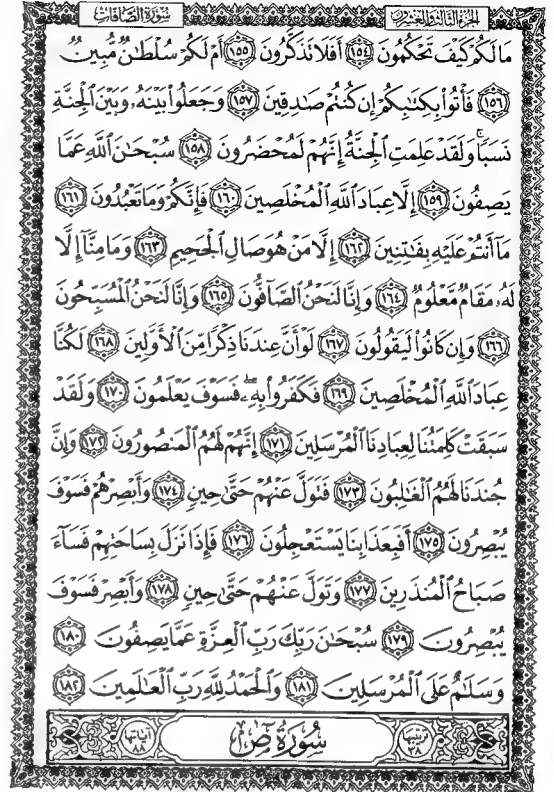 الجزء الثالث والعشرون سورة الصافات
مَا لَكُمْ كَيْفَ تَحْكُمُونَ ١٥٤ أَفَلَا تَذَكَّرُونَ ١٥٥ أَمْ لَكُمْ سُلْطَٰنٌ مُّبِينٌ
١٥٦ فَأْتُوا۟ بِكِتَٰبِكُمْ إِن كُنتُمْ صَٰدِقِينَ ١٥٧ وَجَعَلُوا۟ بَيْنَهُۥ وَبَيْنَ ٱلْجِنَّةِ
نَسَبًا ۚ وَلَقَدْ عَلِمَتِ ٱلْجِنَّةُ إِنَّهُمْ لَمُحْضَرُونَ ١٥٨ سُبْحَٰنَ ٱللَّهِ عَمَّا
يَصِفُونَ ١٥٩ إِلَّا عِبَادَ ٱللَّهِ ٱلْمُخْلَصِينَ ١٦٠ فَإِنَّكُمْ وَمَا تَعْبُدُونَ ١٦١
مَآ أَنتُمْ عَلَيْهِ بِفَٰتِنِينَ ١٦٢ إِلَّا مَنْ هُوَ صَالِ ٱلْجَحِيمِ ١٦٣ وَمَا مِنَّآ إِلَّا
لَهُۥ مَقَامٌ مَّعْلُومٌ ١٦٤ وَإِنَّا لَنَحْنُ ٱلصَّآفُّونَ ١٦٥ وَإِنَّا لَنَحْنُ ٱلْمُسَبِّحُونَ
١٦٦ وَإِن كَانُوا۟ لَيَقُولُونَ ١٦٧ لَوْ أَنَّ عِندَنَا ذِكْرًا مِّنَ ٱلْأَوَّلِينَ ١٦٨ لَكُنَّا
عِبَادَ ٱللَّهِ ٱلْمُخْلَصِينَ ١٦٩ فَكَفَرُوا۟ بِهِۦ ۖ فَسَوْفَ يَعْلَمُونَ ١٧٠ وَلَقَدْ
سَبَقَتْ كَلِمَتُنَا لِعِبَادِنَا ٱلْمُرْسَلِينَ ١٧١ إِنَّهُمْ لَهُمُ ٱلْمَنصُورُونَ ١٧٢ وَإِنَّ
جُندَنَا لَهُمُ ٱلْغَٰلِبُونَ ١٧٣ فَتَوَلَّ عَنْهُمْ حَتَّىٰ حِينٍ ١٧٤ وَأَبْصِرْهُمْ فَسَوْفَ
يُبْصِرُونَ ١٧٥ أَفَبِعَذَابِنَا يَسْتَعْجِلُونَ ١٧٦ فَإِذَا نَزَلَ بِسَاحَتِهِمْ فَسَآءَ
صَبَاحُ ٱلْمُنذَرِينَ ١٧٧ وَتَوَلَّ عَنْهُمْ حَتَّىٰ حِينٍ ١٧٨ وَأَبْصِرْ فَسَوْفَ
يُبْصِرُونَ ١٧٩ سُبْحَٰنَ رَبِّكَ رَبِّ ٱلْعِزَّةِ عَمَّا يَصِفُونَ ١٨٠
وَسَلَٰمٌ عَلَى ٱلْمُرْسَلِينَ ١٨١ وَٱلْحَمْدُ لِلَّهِ رَبِّ ٱلْعَٰلَمِينَ ١٨٢
ترتيبها ٣٨ سُورَةُ صٓ آياتها ٨٨